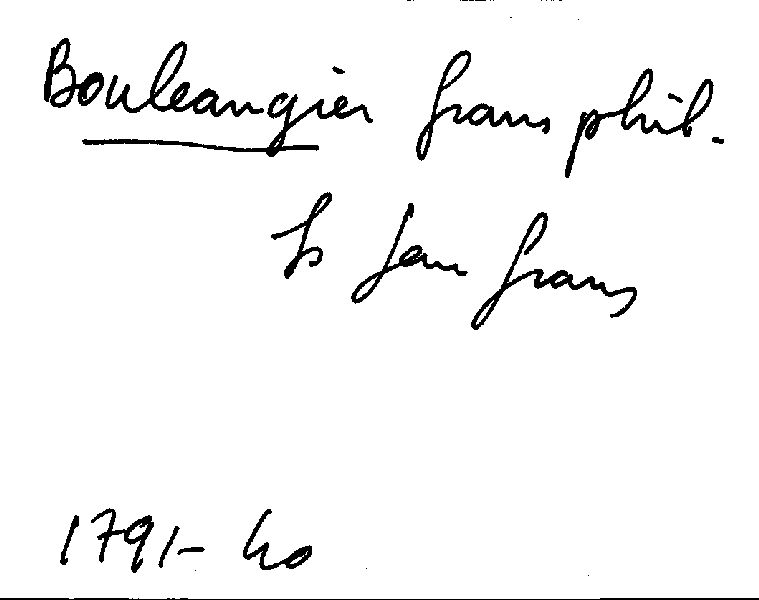 Bouleangier frans phil.
fs Jean frans
1791- 40